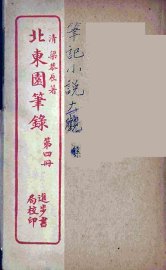 清 梁恭辰著
北東園筆錄
第四冊
進步書局校印
筆記小說大觀